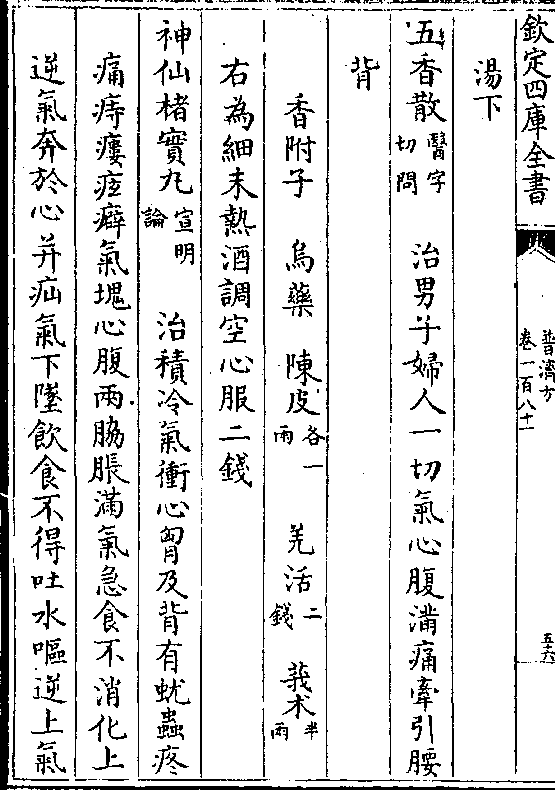 欽定四庫全書
普濟方
卷一百八十一
五六
湯下
五香散醫字切問　治男子婦人一切氣心腹滿痛牽引腰
背
香附子　烏藥　陳皮各一兩　羌活二錢　莪朮半兩
右為細末熱酒調空心服二錢
神仙楮實丸宣明論　治積冷氣衝心胷及背有蚘蟲疼
痛痔瘻痃癖氣塊心腹兩脇脹滿氣急食不消化上
逆氣奔於心并疝氣下墜飲食不得吐水嘔逆上氣